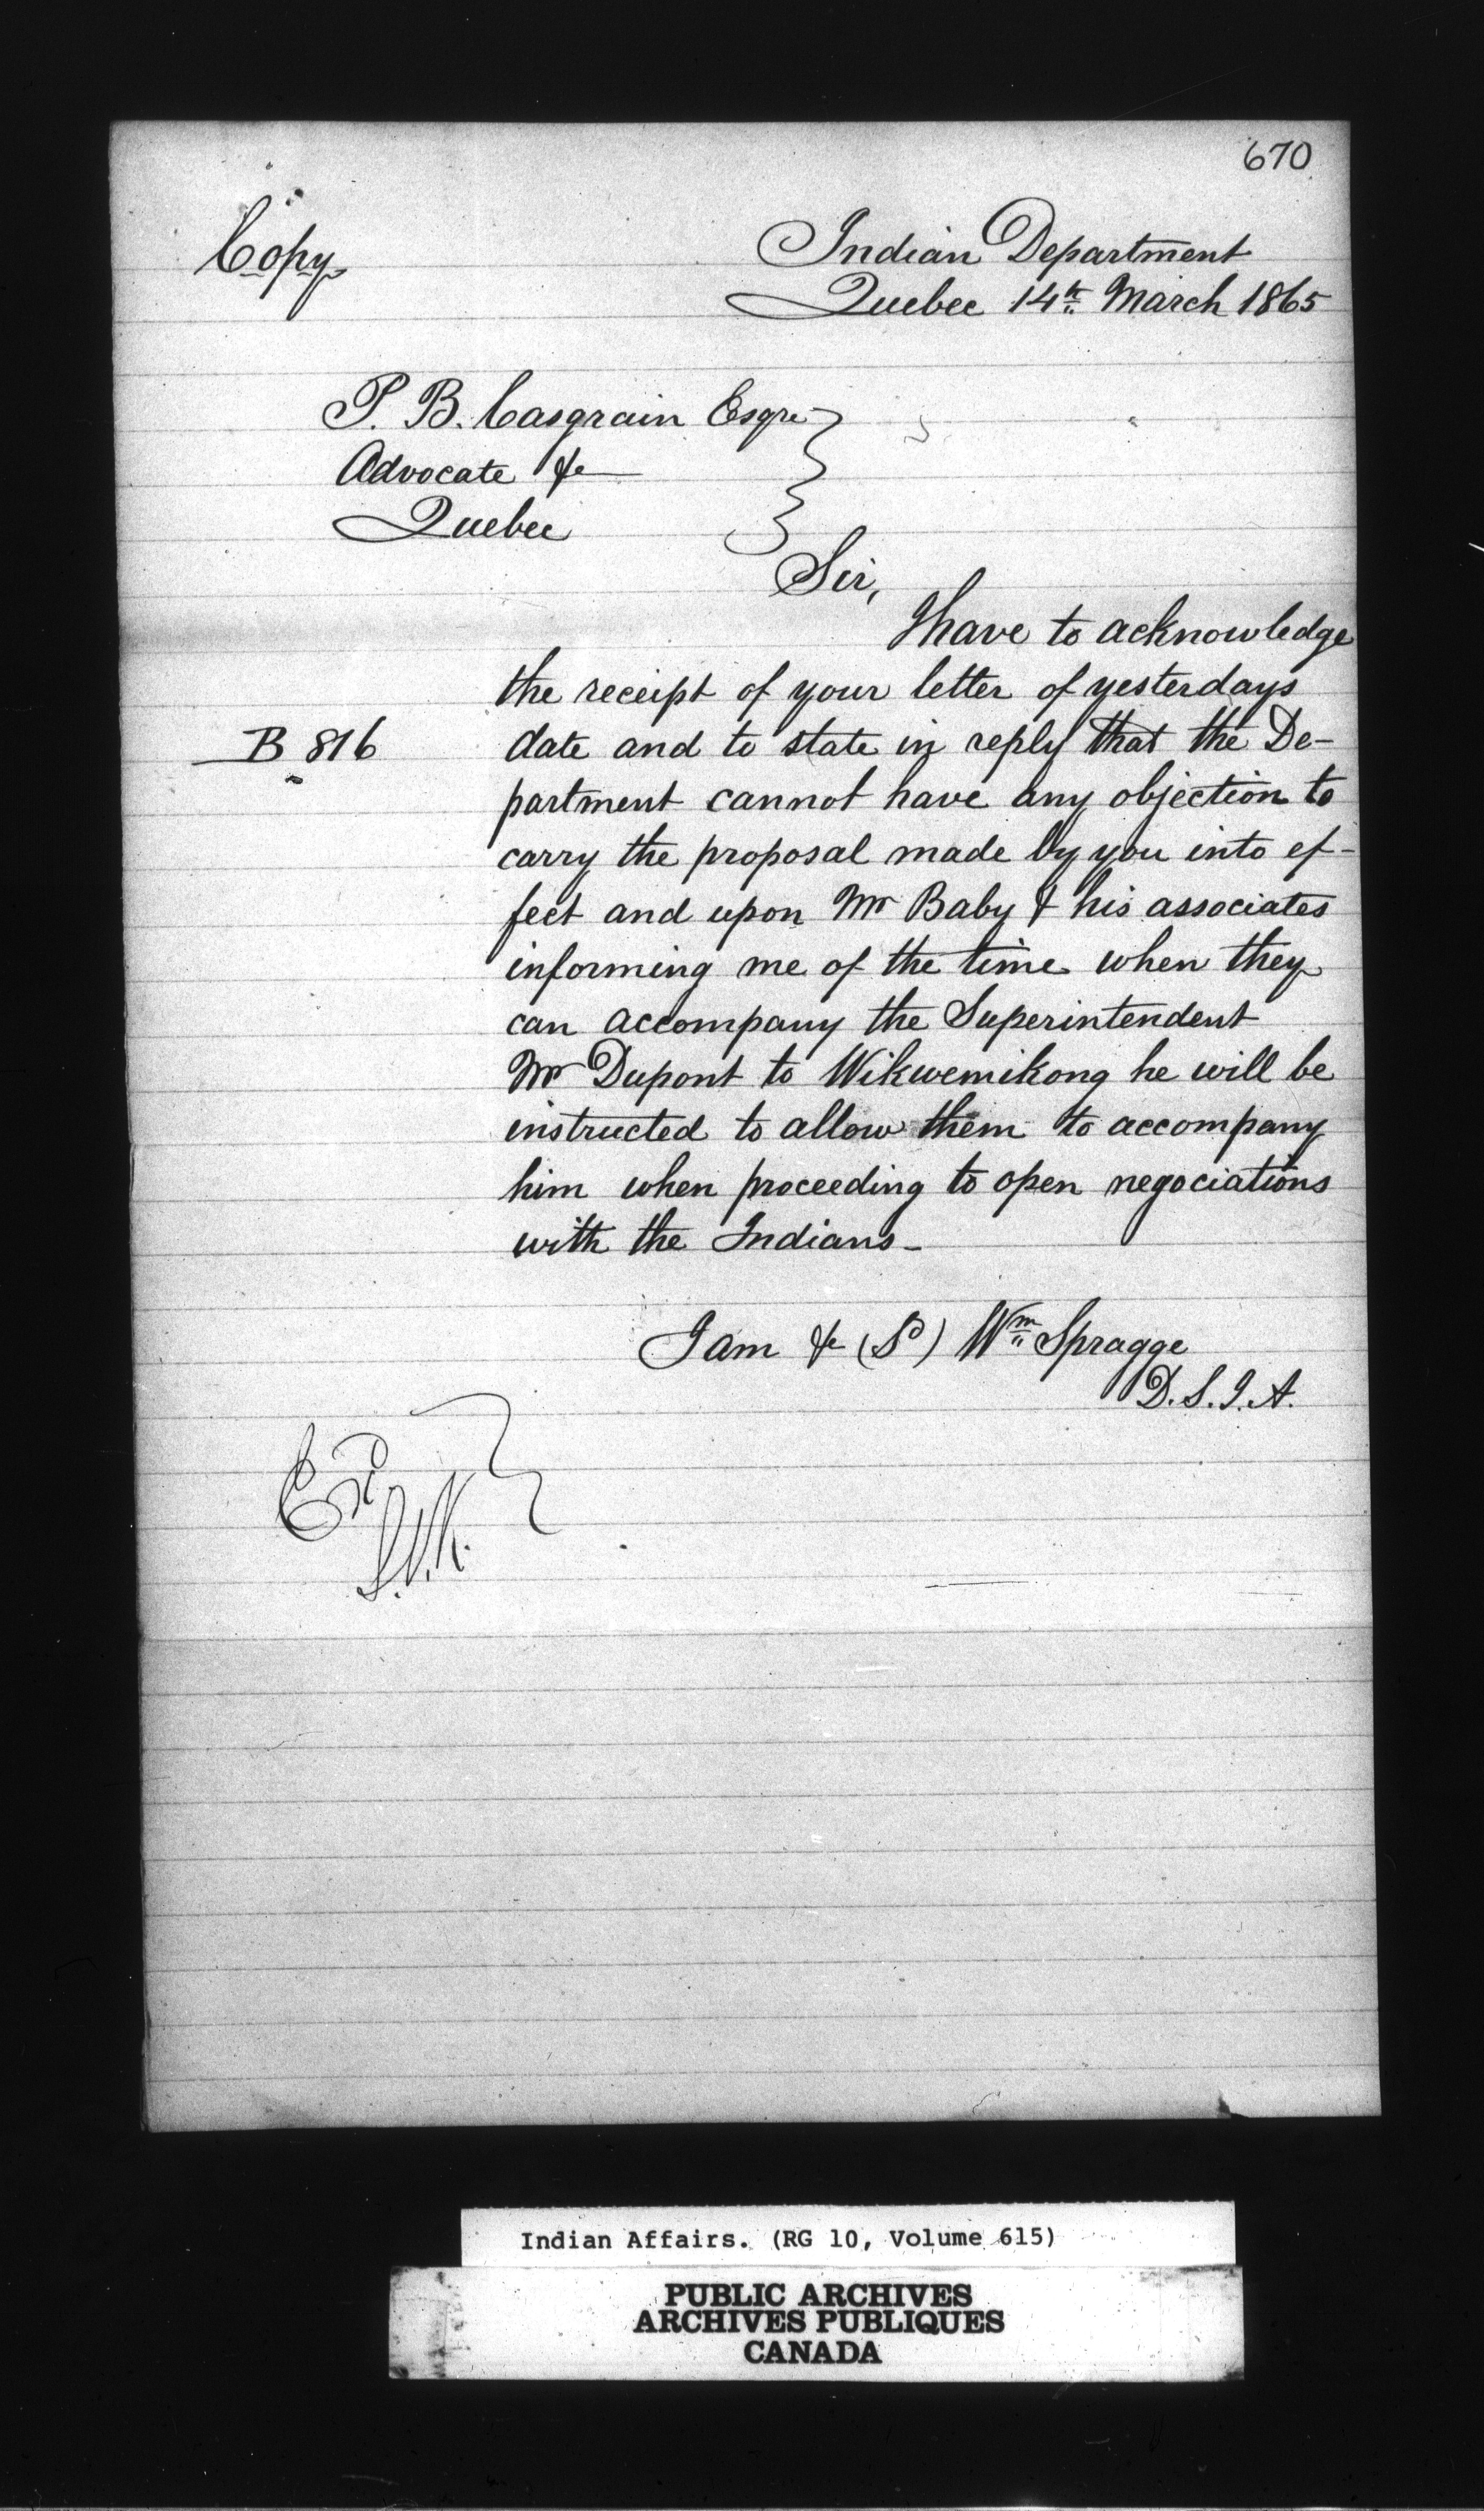 670
Copy
Indian Department
Quebec 14th March 1865
P. B. Casgrain Esqre
Advocate &c
Quebec
Sir,
I have to acknowledge
the receipt of your letter of yesterdays
B 816
date and to state in reply that the De-
partment cannot have any objection to
carry the proposal made by you into ef-
fect and upon Mr Baby & his associates
informing me of the time when they
can accompany the Superintendent
Mr Dupont to Wikwemikong he will be
instructed to allow them to accompany
him when proceeding to open negociations
with the Indians -
I am &c (Sd) Wm Spragge
D.S.I.A.
Exd
Indian Affairs. (RG 10, Volume 615)
PUBLIC ARCHIVES
ARCHIVES PUBLIQUES
CANADA